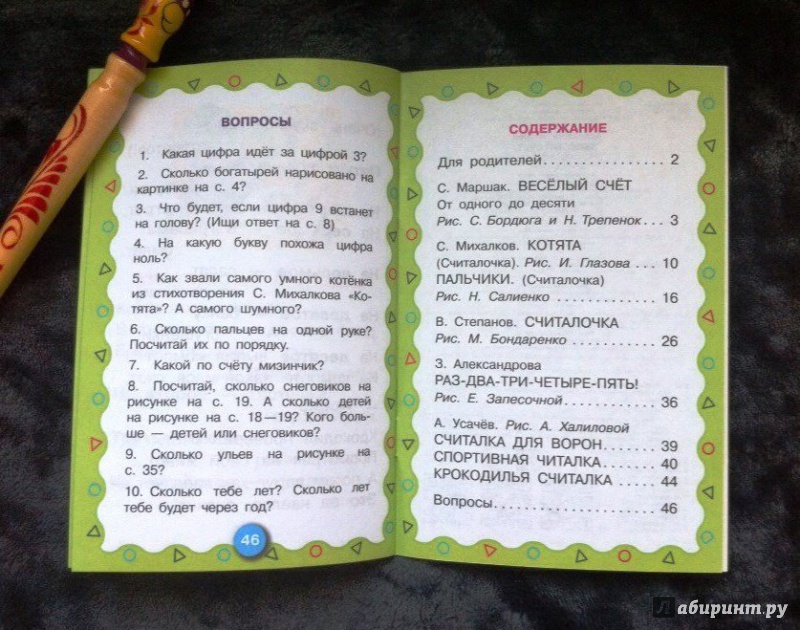 ВОПРОСЫ
1. Какая цифра идёт за цифрой 3?
2. Сколько богатырей нарисовано на
картинке на с. 4?
3. Что будет, если цифра 9 встанет
на голову? (Ищи ответ на с. 8)
4. На какую букву похожа цифра
ноль?
5. Как звали самого умного котёнка
из стихотворения С. Михалкова «Ко-
тята»? А самого шумного?
6. Сколько пальцев на одной руке?
Посчитай их по порядку.
7. Какой по счёту мизинчик?
8. Посчитай, сколько снеговиков на
рисунке на с. 19. А сколько детей
на рисунке на с. 18—19? Кого боль-
ше — детей или снеговиков?
9. Сколько ульев на рисунке на
с. 35?
10. Сколько тебе лет? Сколько лет
тебе будет через год?
46
СОДЕРЖАНИЕ
Для родителей................ 2
С. Маршак. ВЕСЁЛЫЙ СЧЁТ
От одного до десяти
Рис. С. Бордюга и Н. Трепенок... 3
С. Михалков. КОТЯТА
(Считалочка). Рис. И. Глазова .... 10
ПАЛЬЧИКИ. (Считалочка)
Рис. Н. Салиенко .............. 16
В. Степанов. СЧИТАЛОЧКА
Рис. М. Бондаренко ............ 26
З. Александрова
РАЗ-ДВА-ТРИ-ЧЕТЫРЕ-ПЯТЬ!
Рис. Е. Запесочной............. 36
А. Усачёв. Рис. А. Халиловой
СЧИТАЛКА ДЛЯ ВОРОН........ 39
СПОРТИВНАЯ ЧИТАЛКА........ 40
КРОКОДИЛЬЯ СЧИТАЛКА ...... 44
Вопросы...................... 46
Лабиринт.ру